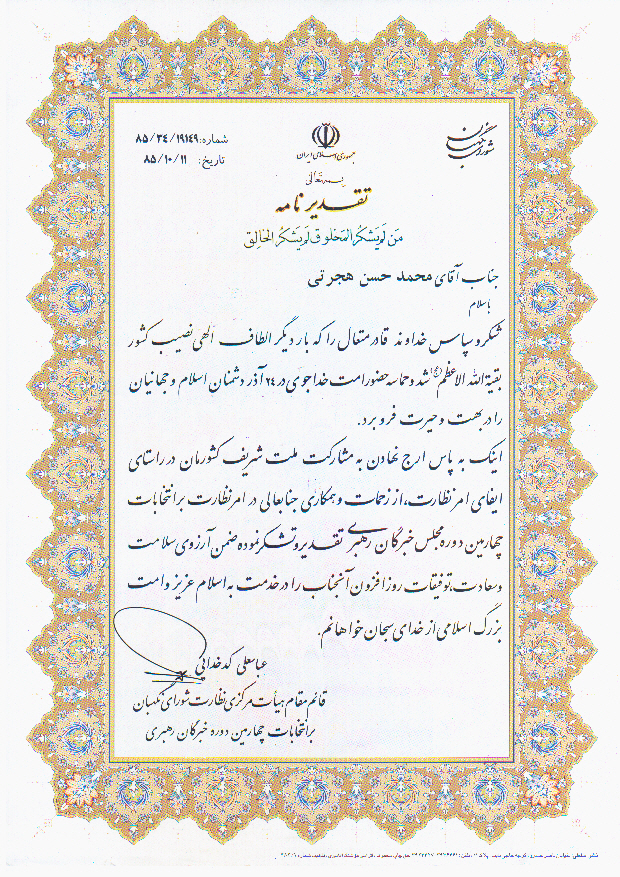 شورای نگهبان
جمهوری اسلامی ایران
شماره: ۸۵/۳۴/۱۹۱۴۹
تاریخ: ۸۵/۱۰/۱۱
بسمه تعالی
تقدیر نامه
مَن لَم یَشکُرِ المَخلوق لَم یَشکُرِ الخالِق
جناب آقای محمد حسن هجرتی
باسلام
شکر و سپاس خداوند قادر متعال را که بار دیگر الطاف الهی نصیب کشور
بقیة الله الاعظم (عج) شد و حماسه حضور امت خداجوی در ۲۴ آذر دشمنان اسلام و جهانیان
را در بهت و حیرت فرو برد.
اینک به پاس ارج نهادن به مشارکت ملت شریف کشورمان در راستای
ایفای امر نظارت، از زحمات و همکاری جنابعالی در امر نظارت بر انتخابات
چهارمین دوره مجلس خبرگان رهبری تقدیر و تشکر نموده ضمن آرزوی سلامت
و سعادت، توفیقات روز افزون آنجناب را در خدمت به اسلام عزیز و امت
بزرگ اسلامی از خدای سبحان خواهانم.
عباسعلی کدخدائی
قائم مقام هیأت مرکزی نظارت شورای نگهبان
بر انتخابات چهارمین دوره خبرگان رهبری